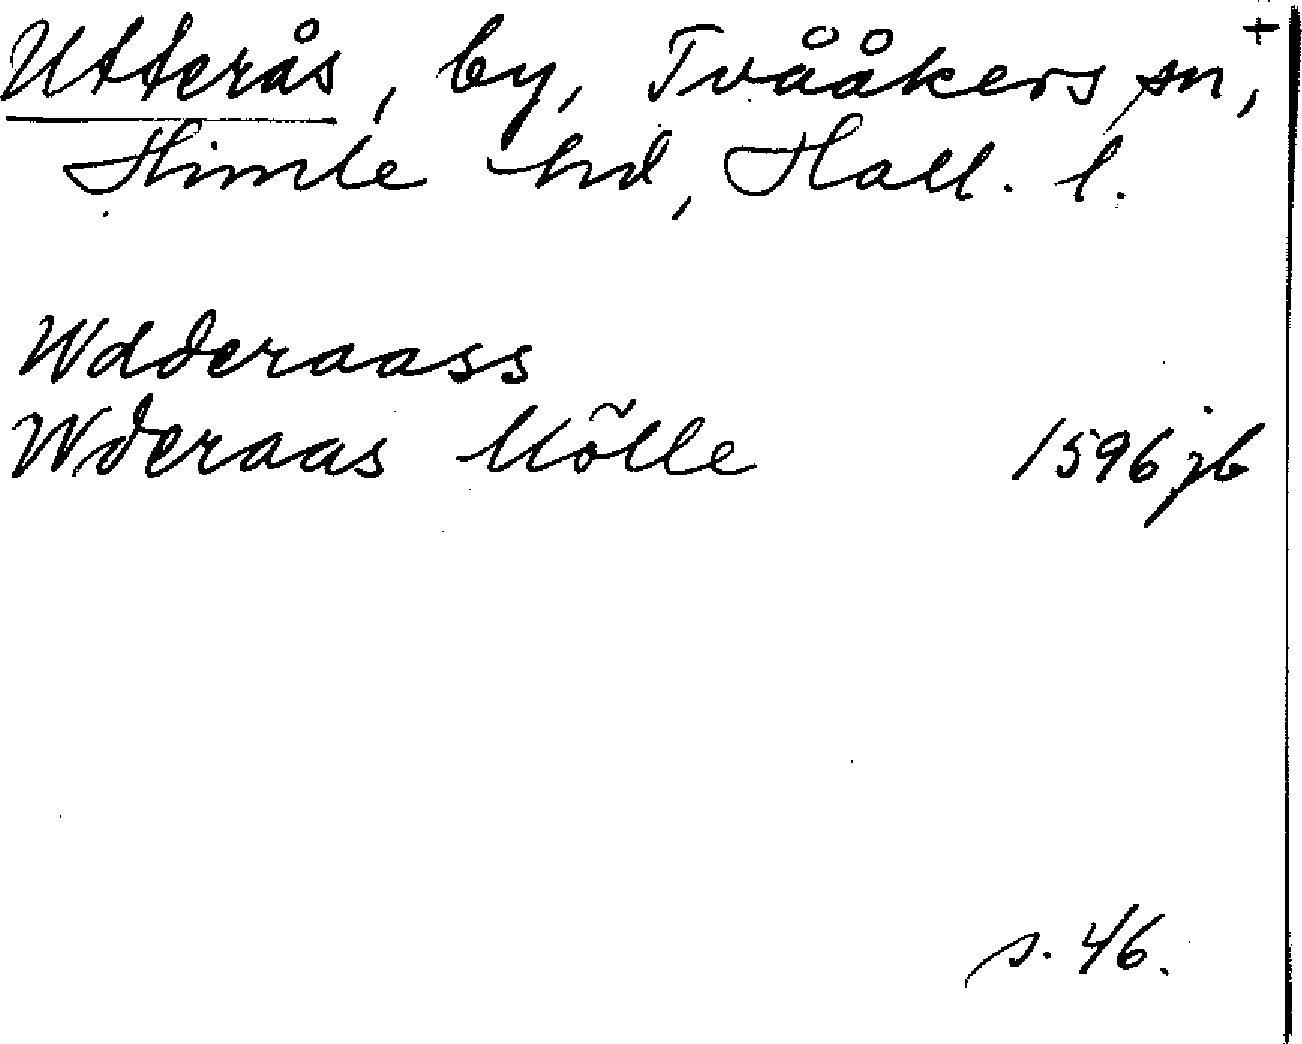 Utterås, by, Tvååkers sn, +
Himle hd, Hall. l.
Wdderaass
Wderaas Mölle 1596 jb
s. 46.